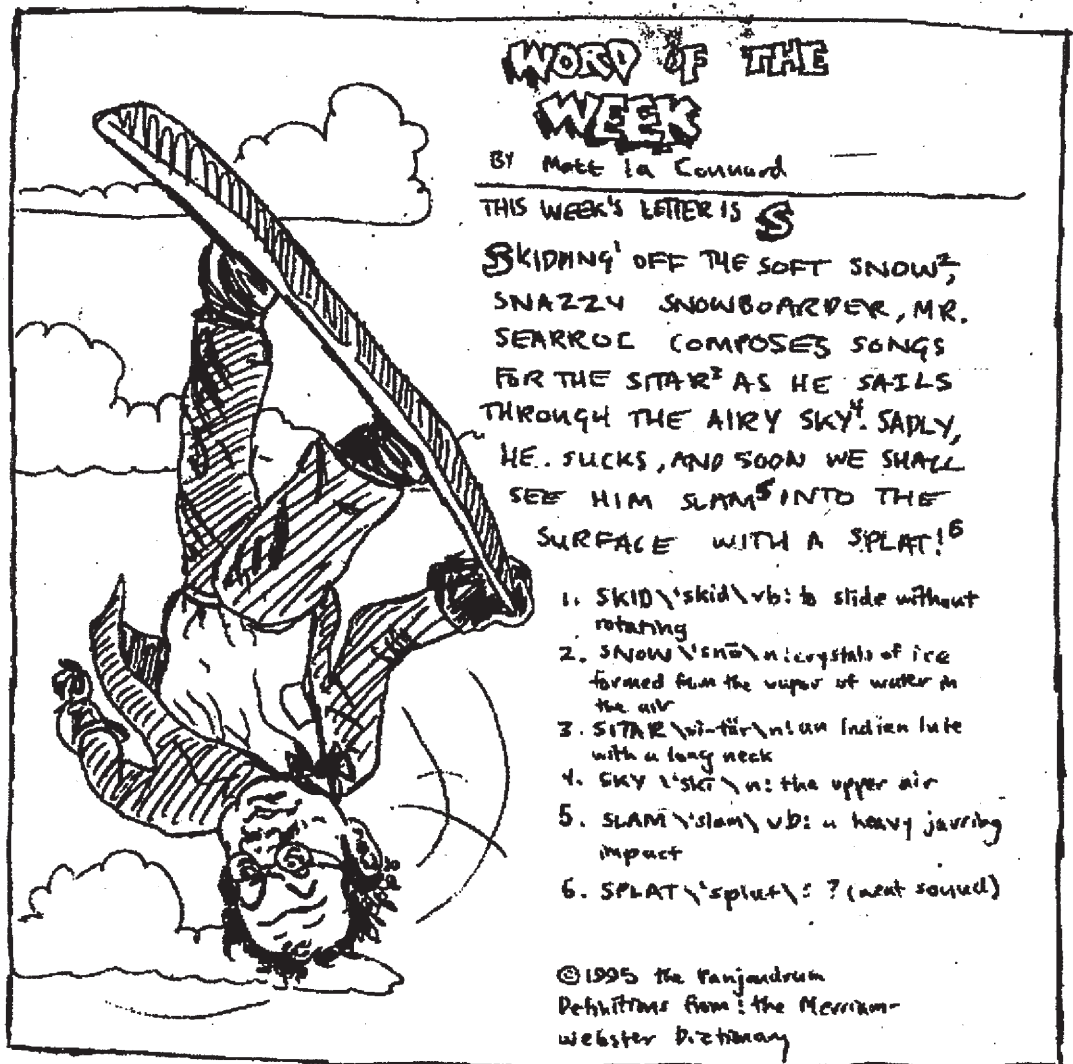 WORD OF THE
WEEK
BY Matt la Connard
THIS WEEK'S LETTER IS S
SKIDDING¹ OFF THE SOFT SNOW²,
SNAZZY SNOWBOARDER, MR.
SEARROC COMPOSES SONGS
FOR THE SITAR³ AS HE SAILS
THROUGH THE AIRY SKY⁴. SADLY,
HE SUCKS, AND SOON WE SHALL
SEE HIM SLAM⁵ INTO THE
SURFACE WITH A SPLAT!⁶
1. SKID\'skid\vb: to slide without
rotating
2. SNOW\'snō\n: crystals of ice
formed from the vapor of water in
the air
3. SITAR\si-tär\n: an Indian lute
with a long neck
4. SKY\'skī\n: the upper air
5. SLAM\'slam\vb: a heavy jarring
impact
6. SPLAT\'splat\: ? (neat sound)
©1995 the Panjandrum
Definitions from: the Merriam-
Webster Dictionary